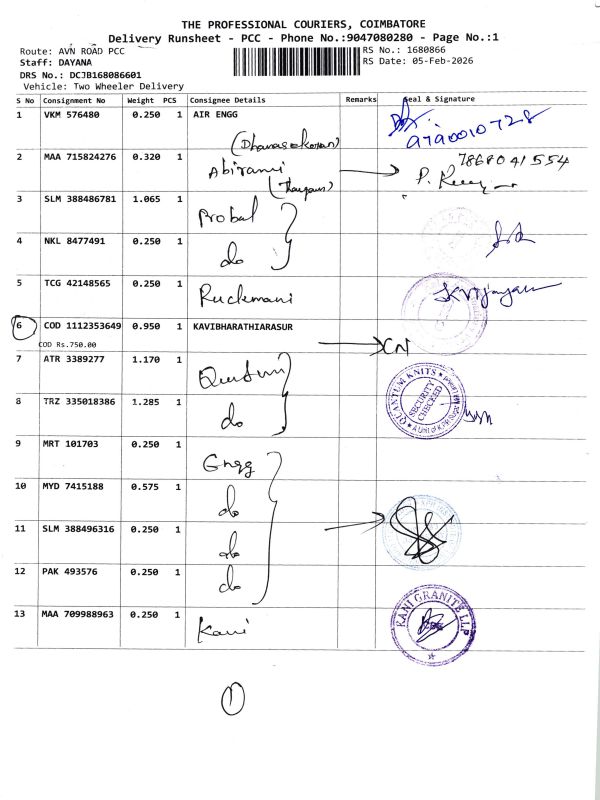 THE PROFESSIONAL COURIERS, COIMBATORE
Delivery Runsheet - PCC - Phone No.:9047080280 - Page No.:1
Route: AVN ROAD PCC
RS No.: 1680866
Staff: DAYANA
RS Date: 05-Feb-2026
DRS No.: DCJB168086601
Vehicle: Two Wheeler Delivery
S No Consignment No Weight PCS Consignee Details Remarks Seal & Signature
1 VKM 576480 0.250 1 AIR ENGG
(Dhanasekaran) 9790010728
2 MAA 715824276 0.320 1 Abirami 7868041554
3 SLM 388486781 1.065 1 Probal
4 NKL 8477491 0.250 1 do
5 TCG 42148565 0.250 1 Ruckmani
6 COD 1112353649 0.950 1 KAVIBHARATHIARASUR
COD Rs.750.00 CN
7 ATR 3389277 1.170 1
QUANTUM KNITS
SECURITY CHECKED
8 TRZ 335018386 1.285 1 do
9 MRT 101703 0.250 1 Engg
10 MYD 7415188 0.575 1 do
11 SLM 388496316 0.250 1 do
12 PAK 493576 0.250 1 do
13 MAA 709988963 0.250 1 Kani
KANI GRANITE LLP
1